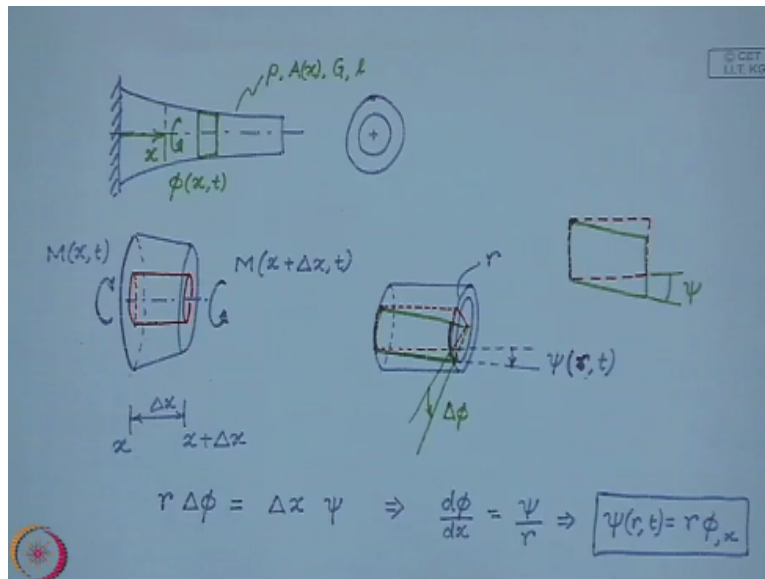 © CET
I.I.T. KGP
ρ, A(x), G, l
x
ϕ(x,t)
M(x,t)
M(x+Δx,t)
r
ψ
ψ(r,t)
Δϕ
Δx
x
x+Δx
r Δϕ = Δx ψ ⇒ dϕ/dx = ψ/r ⇒ ψ(r,t) = r ϕ,x